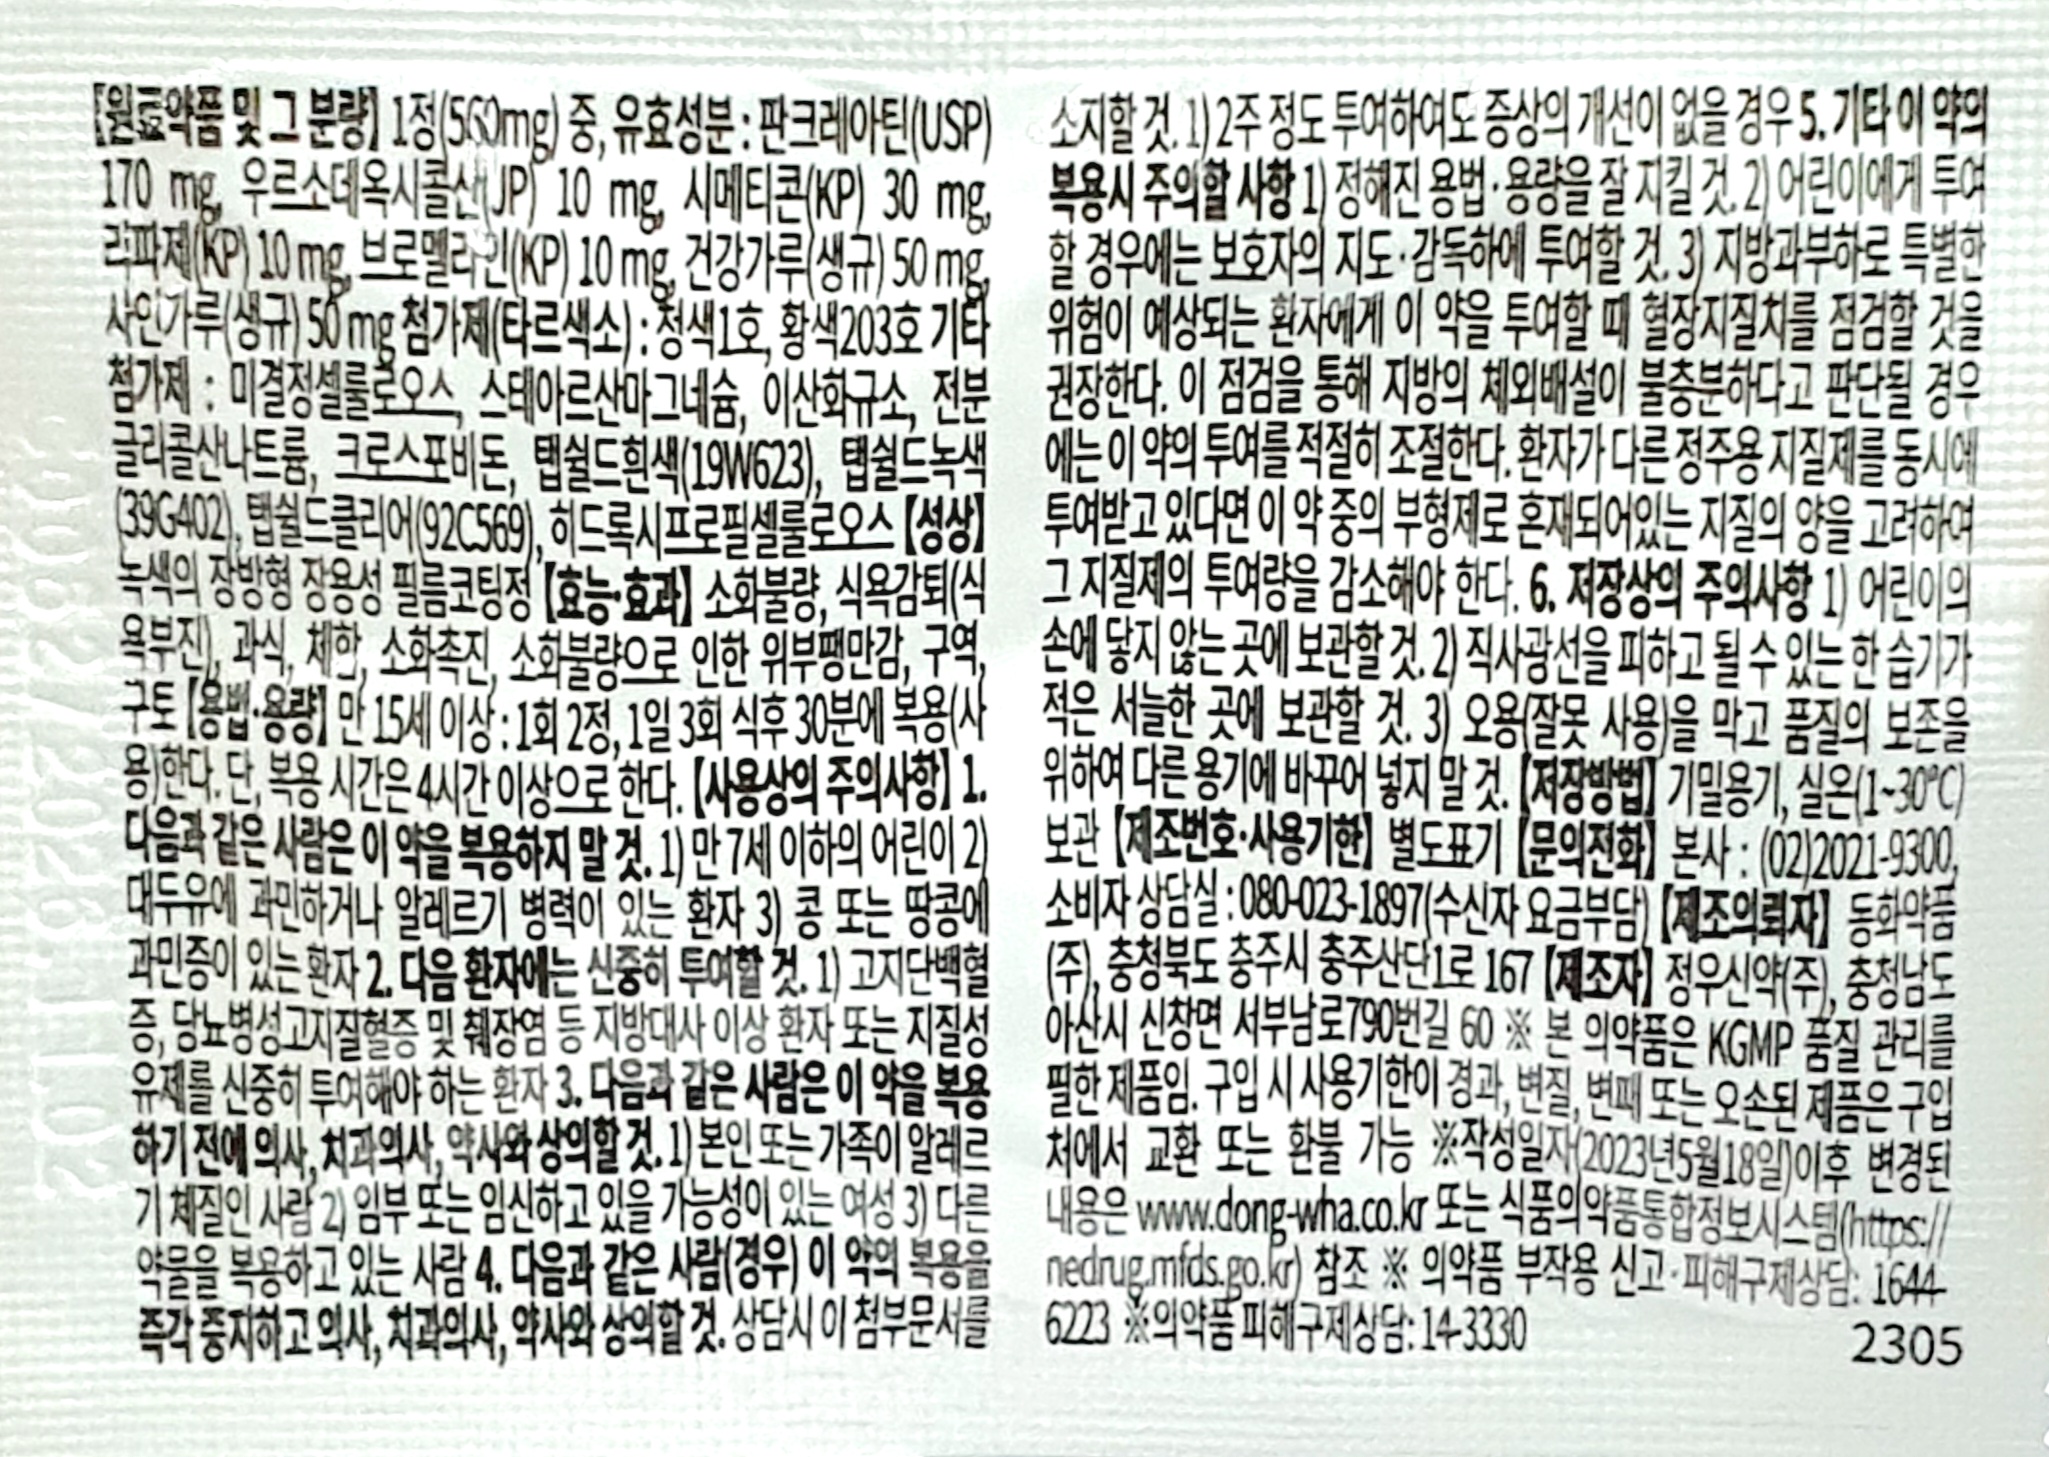 【원료약품 및 그 분량】 1정(560mg) 중, 유효성분 : 판크레아틴(USP)
170 mg, 우르소데옥시콜산(JP) 10 mg, 시메티콘(KP) 30 mg,
리파제(KP) 10 mg, 브로멜라인(KP) 10 mg, 건강가루(생규) 50 mg,
사인가루(생규) 50 mg 첨가제(타르색소) : 청색1호, 황색203호 기타
첨가제 : 미결정셀룰로오스, 스테아르산마그네슘, 이산화규소, 전분
글리콜산나트륨, 크로스포비돈, 탭쉴드흰색(19W623), 탭쉴드녹색
(39G402), 탭쉴드클리어(92C569), 히드록시프로필셀룰로오스 【성상】
녹색의 장방형 장용성 필름코팅정 【효능·효과】 소화불량, 식욕감퇴(식
욕부진), 과식, 체함, 소화촉진, 소화불량으로 인한 위부팽만감, 구역,
구토 【용법·용량】 만 15세 이상 : 1회 2정, 1일 3회 식후 30분에 복용(사
용)한다. 단, 복용 시간은 4시간 이상으로 한다. 【사용상의 주의사항】 1.
다음과 같은 사람은 이 약을 복용하지 말 것. 1) 만 7세 이하의 어린이 2)
대두유에 과민하거나 알레르기 병력이 있는 환자 3) 콩 또는 땅콩에
과민증이 있는 환자 2. 다음 환자에는 신중히 투여할 것. 1) 고지단백혈
증, 당뇨병성고지질혈증 및 췌장염 등 지방대사 이상 환자 또는 지질성
유제를 신중히 투여해야 하는 환자 3. 다음과 같은 사람은 이 약을 복용
하기 전에 의사, 치과의사, 약사와 상의할 것. 1) 본인 또는 가족이 알레르
기 체질인 사람 2) 임부 또는 임신하고 있을 가능성이 있는 여성 3) 다른
약물을 복용하고 있는 사람 4. 다음과 같은 사람(경우) 이 약의 복용을
즉각 중지하고 의사, 치과의사, 약사와 상의할 것. 상담시 이 첨부문서를
소지할 것. 1) 2주 정도 투여하여도 증상의 개선이 없을 경우 5. 기타 이 약의
복용시 주의할 사항 1) 정해진 용법·용량을 잘 지킬 것. 2) 어린이에게 투여
할 경우에는 보호자의 지도·감독하에 투여할 것. 3) 지방과부하로 특별한
위험이 예상되는 환자에게 이 약을 투여할 때 혈장지질치를 점검할 것을
권장한다. 이 점검을 통해 지방의 체외배설이 불충분하다고 판단될 경우
에는 이 약의 투여를 적절히 조절한다. 환자가 다른 정주용 지질제를 동시에
투여받고 있다면 이 약 중의 부형제로 혼재되어있는 지질의 양을 고려하여
그 지질제의 투여량을 감소해야 한다. 6. 저장상의 주의사항 1) 어린이의
손에 닿지 않는 곳에 보관할 것. 2) 직사광선을 피하고 될 수 있는 한 습기가
적은 서늘한 곳에 보관할 것. 3) 오용(잘못 사용)을 막고 품질의 보존을
위하여 다른 용기에 바꾸어 넣지 말 것. 【저장방법】 기밀용기, 실온(1~30℃)
보관 【제조번호·사용기한】 별도표기 【문의전화】 본사 : (02)2021-9300,
소비자 상담실 : 080-023-1897(수신자 요금부담) 【제조의뢰자】 동화약품
(주), 충청북도 충주시 충주산단1로 167 【제조자】 정우신약(주), 충청남도
아산시 신창면 서부남로790번길 60 ※ 본 의약품은 KGMP 품질 관리를
필한 제품임. 구입 시 사용기한이 경과, 변질, 변패 또는 오손된 제품은 구입
처에서 교환 또는 환불 가능 ※작성일자(2023년5월18일)이후 변경된
내용은 www.dong-wha.co.kr 또는 식품의약품통합정보시스템(https://
nedrug.mfds.go.kr) 참조 ※ 의약품 부작용 신고·피해구제상담: 1644-
6223 ※의약품 피해구제상담: 14-3330
2305